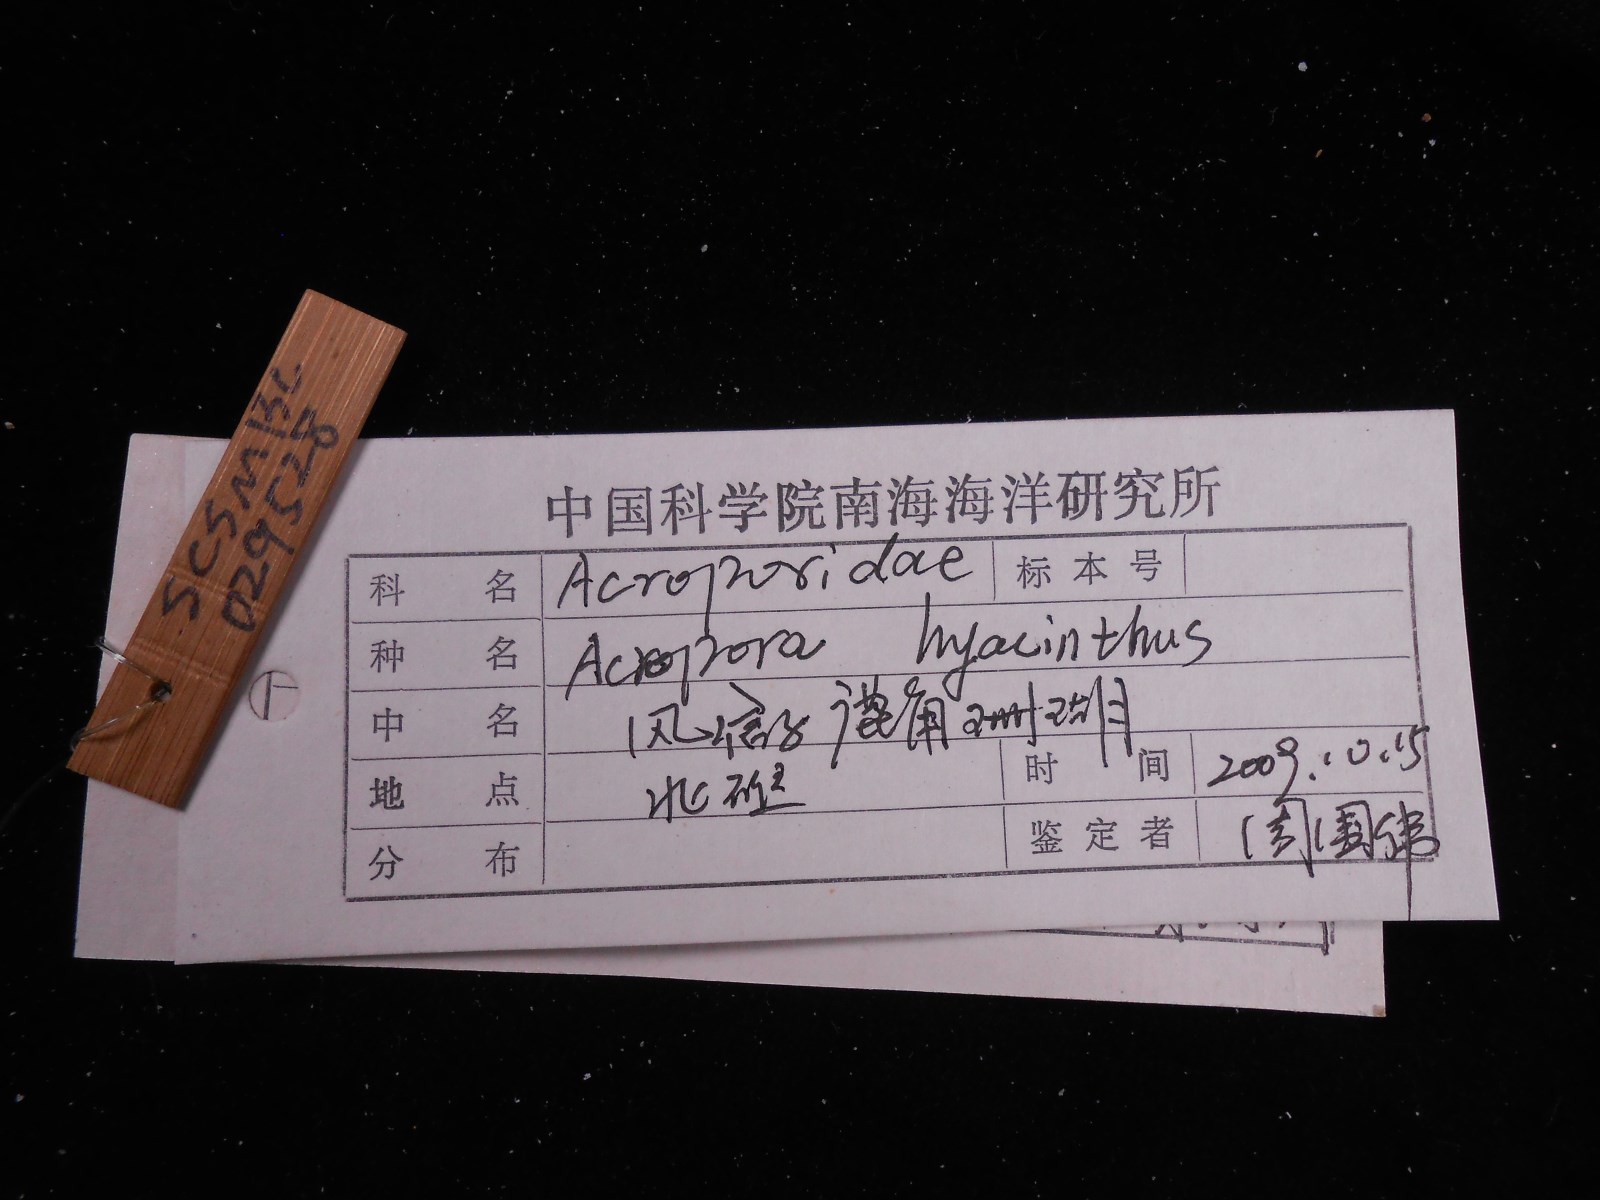 SCSMBC
029528
中国科学院南海海洋研究所
科名 Acroporidae 标本号
种名 Acropora hyacinthus
中名 风信子鹿角珊瑚
地点 北礁 时间 2009.10.15
分布 鉴定者 周国伟